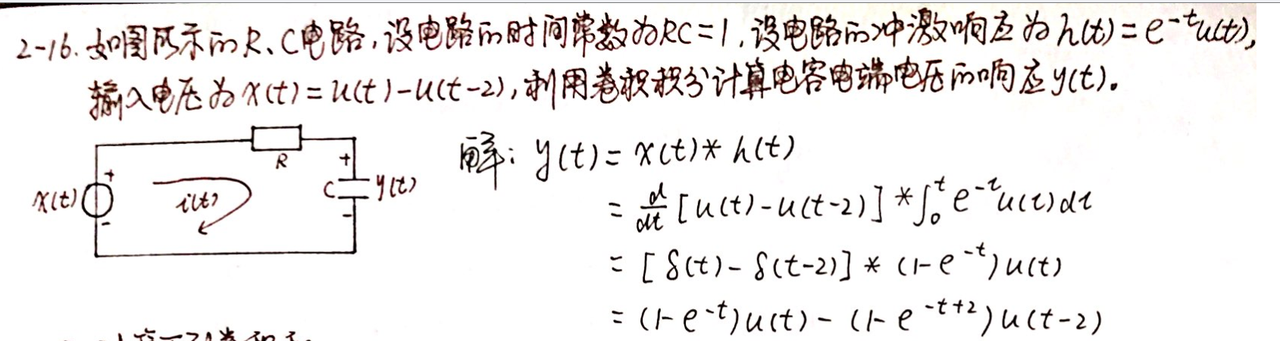 2-16. 如图所示的R、C电路,设电路的时间常数为RC=1,设电路的冲激响应为h(t)=e^{-t}u(t),
输入电压为x(t)=u(t)-u(t-2),利用卷积积分计算电容电端电压的响应y(t)。
R
x(t) + - i(t) C + - y(t)
解: y(t)=x(t)* h(t)
= \frac{d}{dt} [u(t)-u(t-2)] * ∫_0^t e^{-τ}u(τ)dτ
= [δ(t)-δ(t-2)] * (1-e^{-t})u(t)
= (1-e^{-t})u(t) - (1-e^{-t+2})u(t-2)